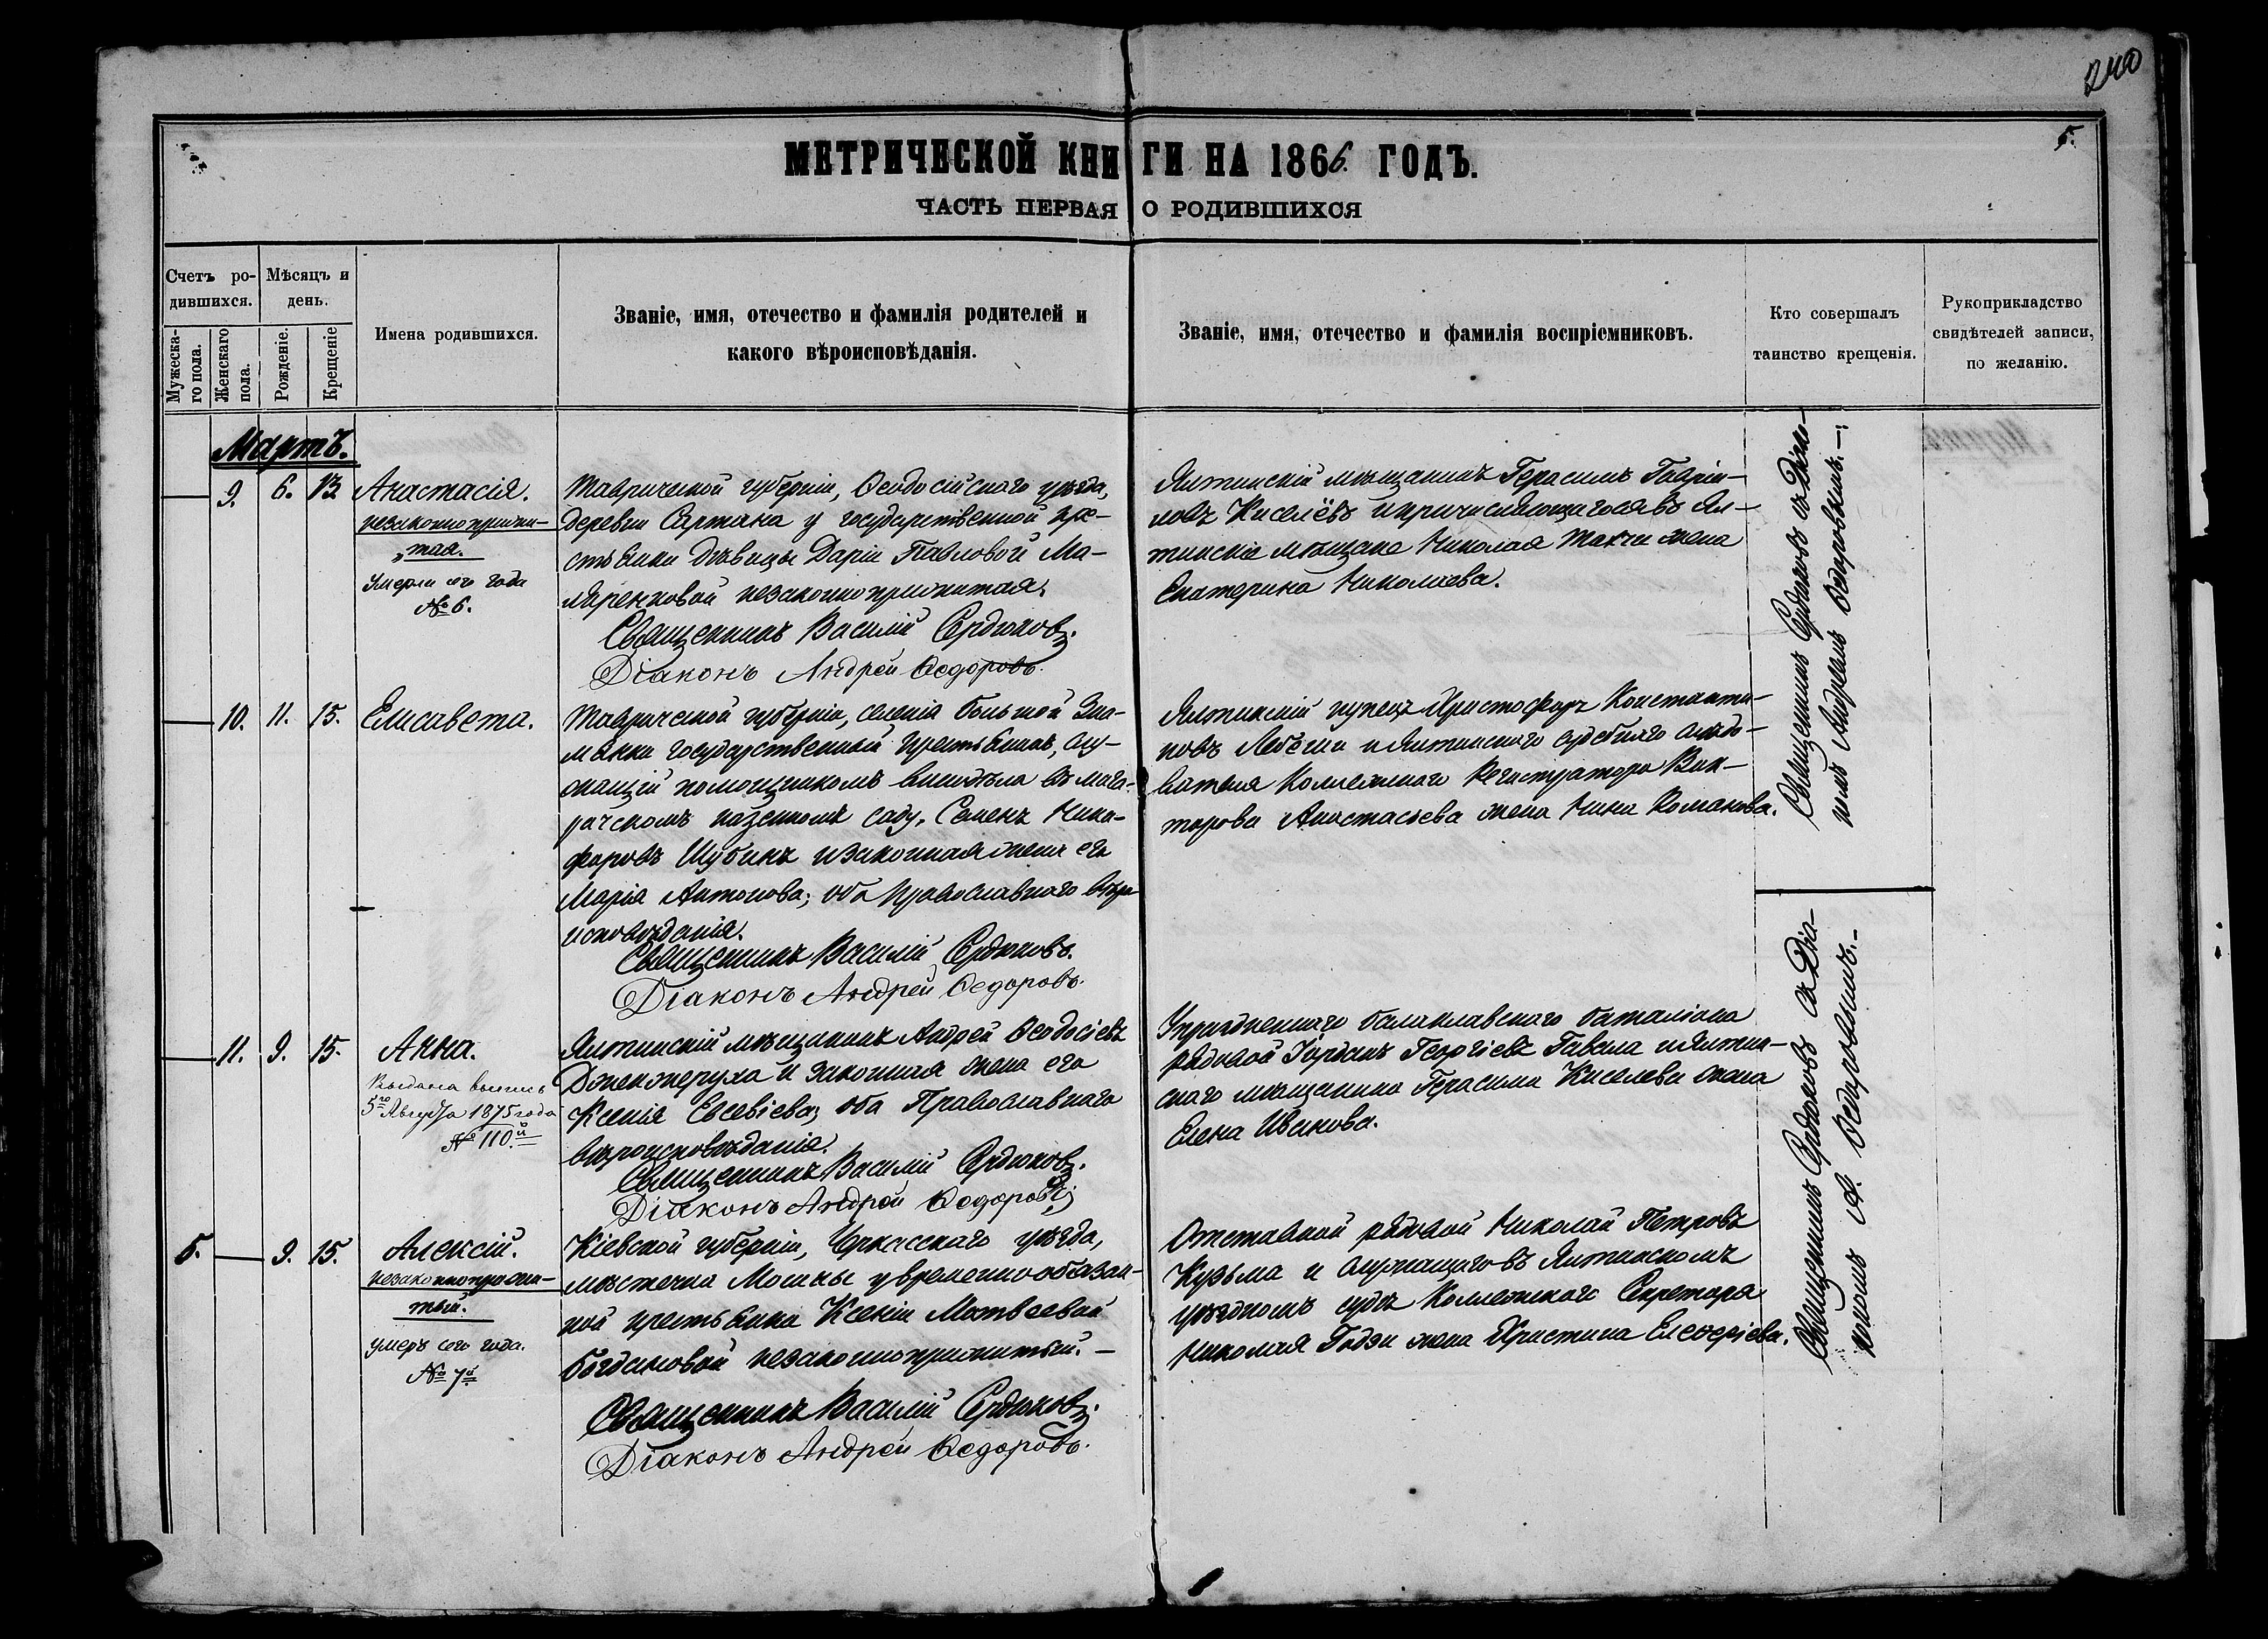 240
5.
МЕТРИЧЕСКОЙ КНИГИ НА 1866. ГОДЪ.
ЧАСТЬ ПЕРВАЯ О РОДИВШИХСЯ
Счетъ ро-
дившихся.
Мужеска-
го пола.
Женскаго
пола.
Мѣсяцъ и
день.
Рожденіе.
Крещеніе
Имена родившихся.
Званіе, имя, отечество и фамилія родителей и
какого вѣроисповѣданія.
Званіе, имя, отечество и фамилія воспріемниковъ.
Кто совершалъ
таинство крещенія.
Рукоприкладство
свидѣтелей записи,
по желанію.
Мартъ.
9. 6. 13. Анастасія.
незаконноприжи-
тая.
Умерла сего года
№ 6.
Таврической губерніи, Ѳеодосійскаго уѣзда,
деревни Сартана у государственной кре-
стьянки дѣвицы Даріи Павловой Ма-
ляренковой незаконноприжитая.
Священникъ Василій Сердюковъ.
Діаконъ Андрей Ѳедоровъ.
Ялтинскій мѣщанинъ Герасимъ Гаврии-
ловъ Киселёвъ и причисляющагося въ Ял-
тинскіе мѣщане Николая Такчи жена
Екатерина Николаева.
Священникъ Сердюковъ съ Діако-
номъ Андреемъ Ѳедоровымъ.
10. 11. 15. Елисавета.
Таврической губерніи, селенія большой Зна-
мянки государственный крестьянинъ, слу-
жащій помощникомъ винодѣла въ мага-
рачскомъ казенномъ саду, Семенъ Ники-
форовъ Шубинъ и законная жена его
Марія Антонова; оба Православнаго вѣро
исповѣданія.
Священникъ Василій Сердюковъ.
Діаконъ Андрей Ѳедоровъ.
Ялтинскій купецъ Христофоръ Константи-
новъ и Ялтинскаго судебнаго слѣдо-
вателя Коллежскаго Регистратора Вик-
торова Анастасьева жена Нина Романова.
11. 9. 15. Анна.
Выдана выпись
5го Августа 1875 года
№ 110.й
Ялтинскій мѣщанинъ Андрей Ѳеодосіевъ
Дженжеруха и законная жена его
Ксенія Евсевіева; оба Православнаго
вѣроисповѣданія.
Священникъ Василій Сердюковъ.
Діаконъ Андрей Ѳедоровъ;
Упраздненнаго балаклавскаго баталіона
рядовой Іорданъ Георгіевъ Гавала и Ялтин-
скаго мѣщанина Герасима Киселева жена
Елена Иванова.
Священникъ Сердюковъ съ Діа-
кономъ А. Ѳедоровымъ.
5. 9. 15. Алексій.
незаконноприжи-
тый.
умеръ сего года.
№ 7й
Кіевской губерніи, Черкасскаго уѣзда,
мѣстечка Мошны у временнообязан-
ной крестьянки Ксеніи Матвеевой
Богдановой незаконноприжитый.
Священникъ Василій Сердюковъ.
Діаконъ Андрей Ѳедоровъ.
Отставной рядовой Николай Петровъ
Кузьма и служащаго въ Ялтинскомъ
уѣздномъ судѣ Коллежскаго Секретаря
Николая Гадзи жена Христина Елевѳеріева.